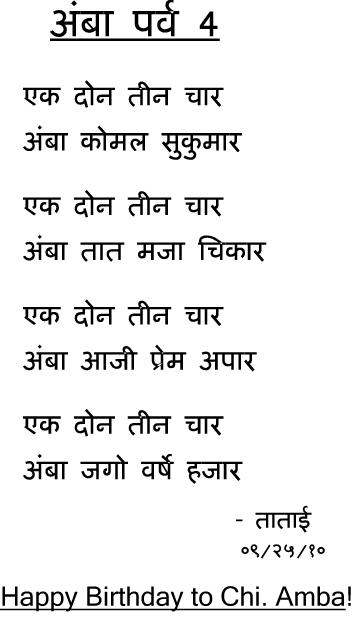 अंबा पर्व 4
एक दोन तीन चार
अंबा कोमल सुकुमार
एक दोन तीन चार
अंबा तात मजा चिकार
एक दोन तीन चार
अंबा आजी प्रेम अपार
एक दोन तीन चार
अंबा जगो वर्षे हजार
- ताताई
०९/२५/१०
Happy Birthday to Chi. Amba!